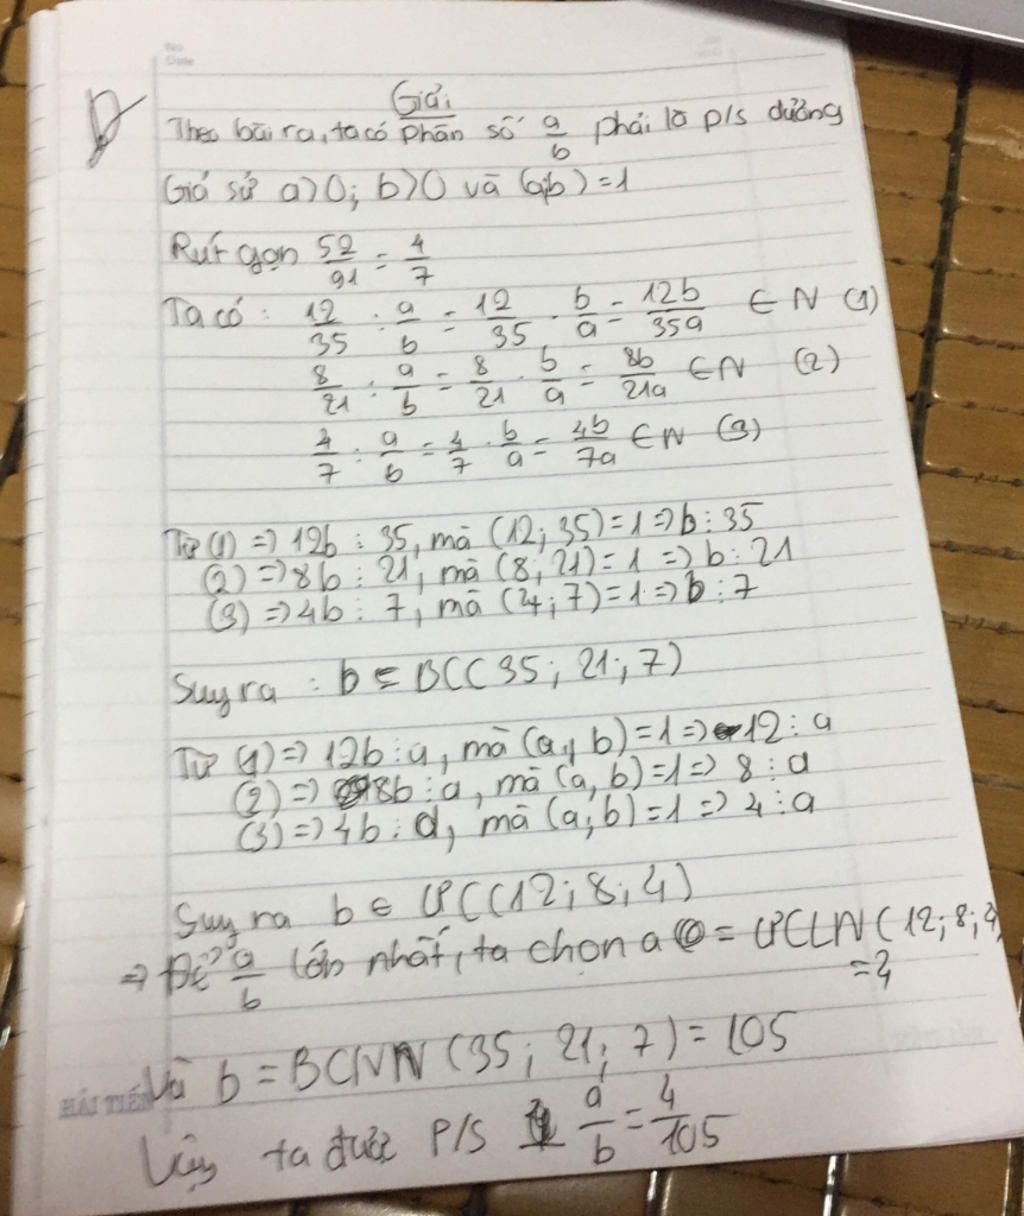 No
Date
Giải
Theo bài ra, ta có phân số a/b phải là p/s dương
Giả sử a>0; b>0 và (a;b)=1
Rút gọn 52/91 = 4/7
Ta có: 12/35 : a/b = 12/35 . b/a = 12b/35a ∈ N (1)
8/21 : a/b = 8/21 . b/a = 8b/21a ∈ N (2)
4/7 : a/b = 4/7 . b/a = 4b/7a ∈ N (3)
Từ (1) => 12b ⋮ 35, mà (12; 35)=1 => b ⋮ 35
(2) => 8b ⋮ 21, mà (8; 21)=1 => b ⋮ 21
(3) => 4b ⋮ 7, mà (4; 7)=1 => b ⋮ 7
Suy ra : b ∈ BC(35; 21; 7)
Từ (1) => 12b ⋮ a, mà (a, b)=1 => 12 ⋮ a
(2) => 8b ⋮ a, mà (a, b)=1 => 8 ⋮ a
(3) => 4b ⋮ a, mà (a; b)=1 => 4 ⋮ a
Suy ra b ∈ ƯC(12; 8; 4)
=> Để a/b lớn nhất, ta chọn a = ƯCLN(12; 8; 4)
=4
Và b = BCNN(35; 21; 7) = 105
HẢI TIẾN
Vậy ta được P/S a/b = 4/105